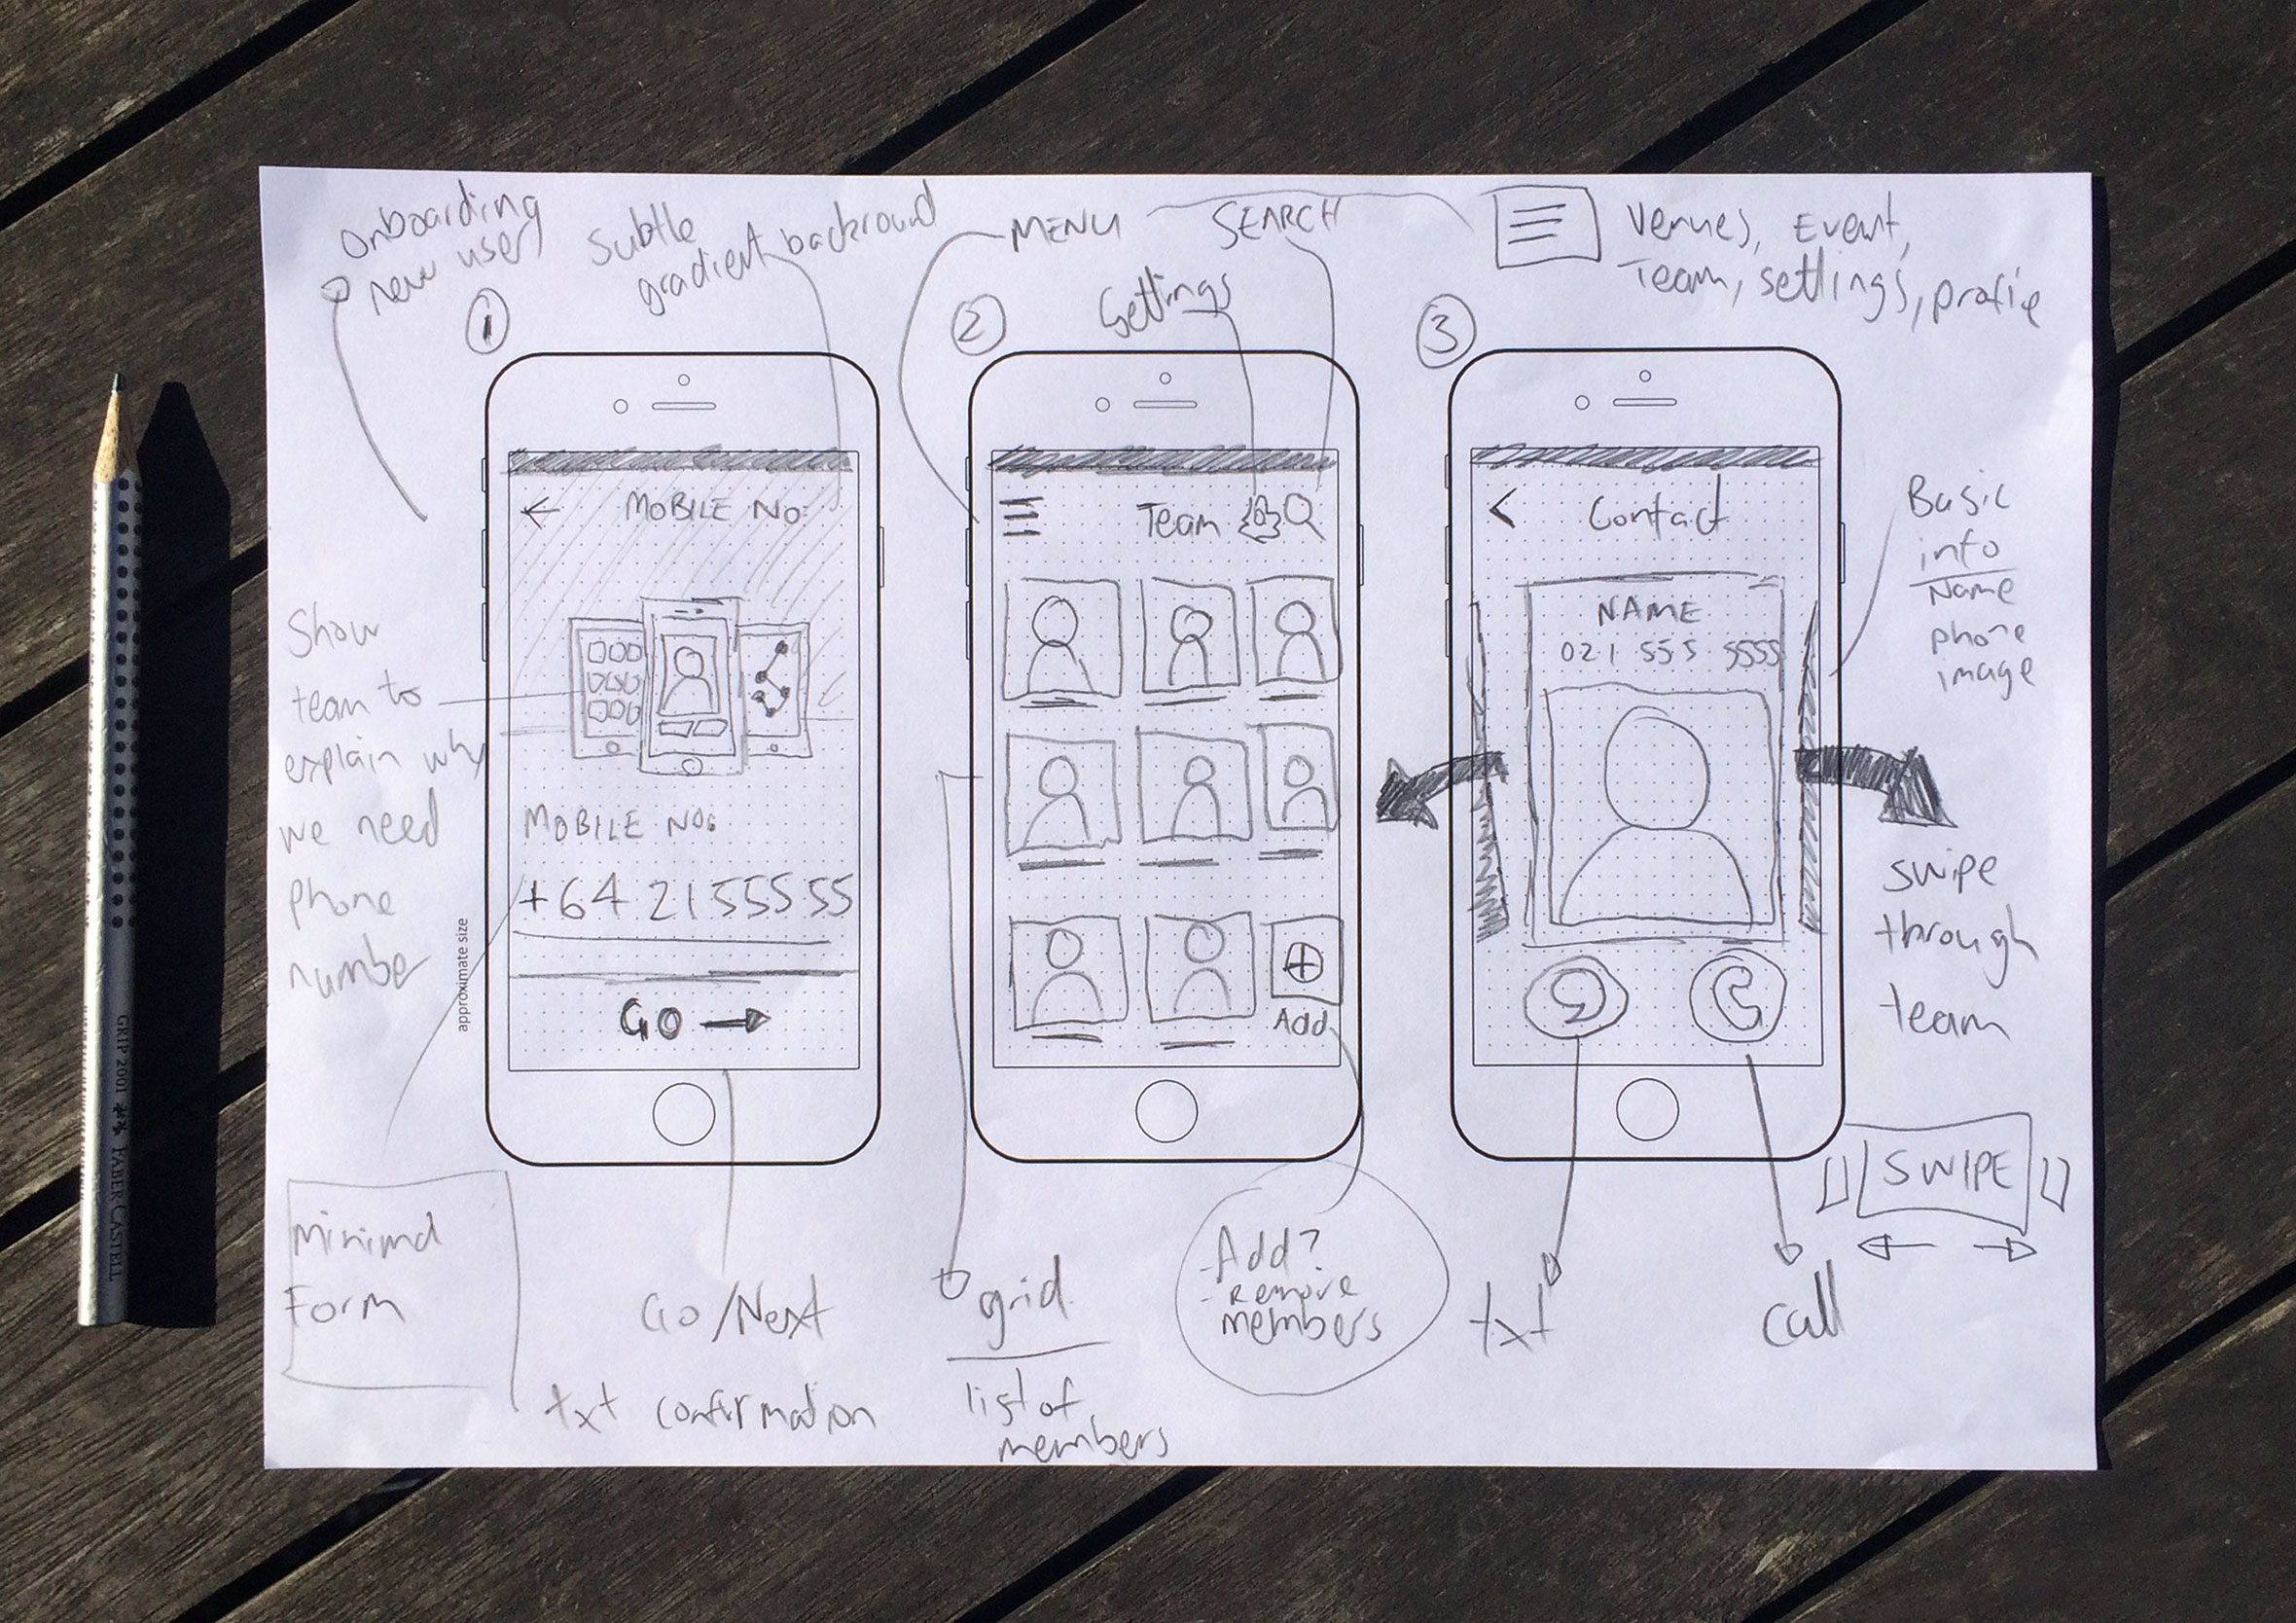 Onboarding
new user
Subtle
gradient backround
MENU
SEARCH
Settings
Venues, Event,
Team, settings, profie
1
2
3
MOBILE NO:
MOBILE NO:
+64 21 555 55
GO
approximate size
Show
team to
explain why
we need
phone
number
Minimal
Form
Go/Next
txt confirmation
Team
Add
grid
list of
members
- Add?
- Remove
members
Contact
NAME
021 555 5555
Basic
info
Name
phone
image
swipe
through
team
SWIPE
txt
call
GRIP 2001 FABER-CASTELL